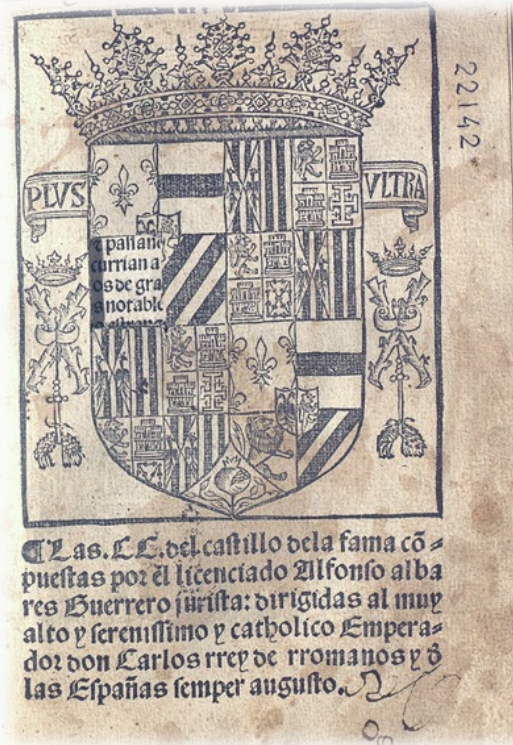 22142
PLVS
VLTRA
t passand
currian a
os de gra
s notable
¶Las.CC.del castillo dela fama cõ-
puestas por el licenciado Alfonso alba
res Guerrero jurista: dirigidas al muy
alto y serenissimo y catholico Empera-
dor don Carlos rrey de rromanos y đ
las Españas semper augusto.